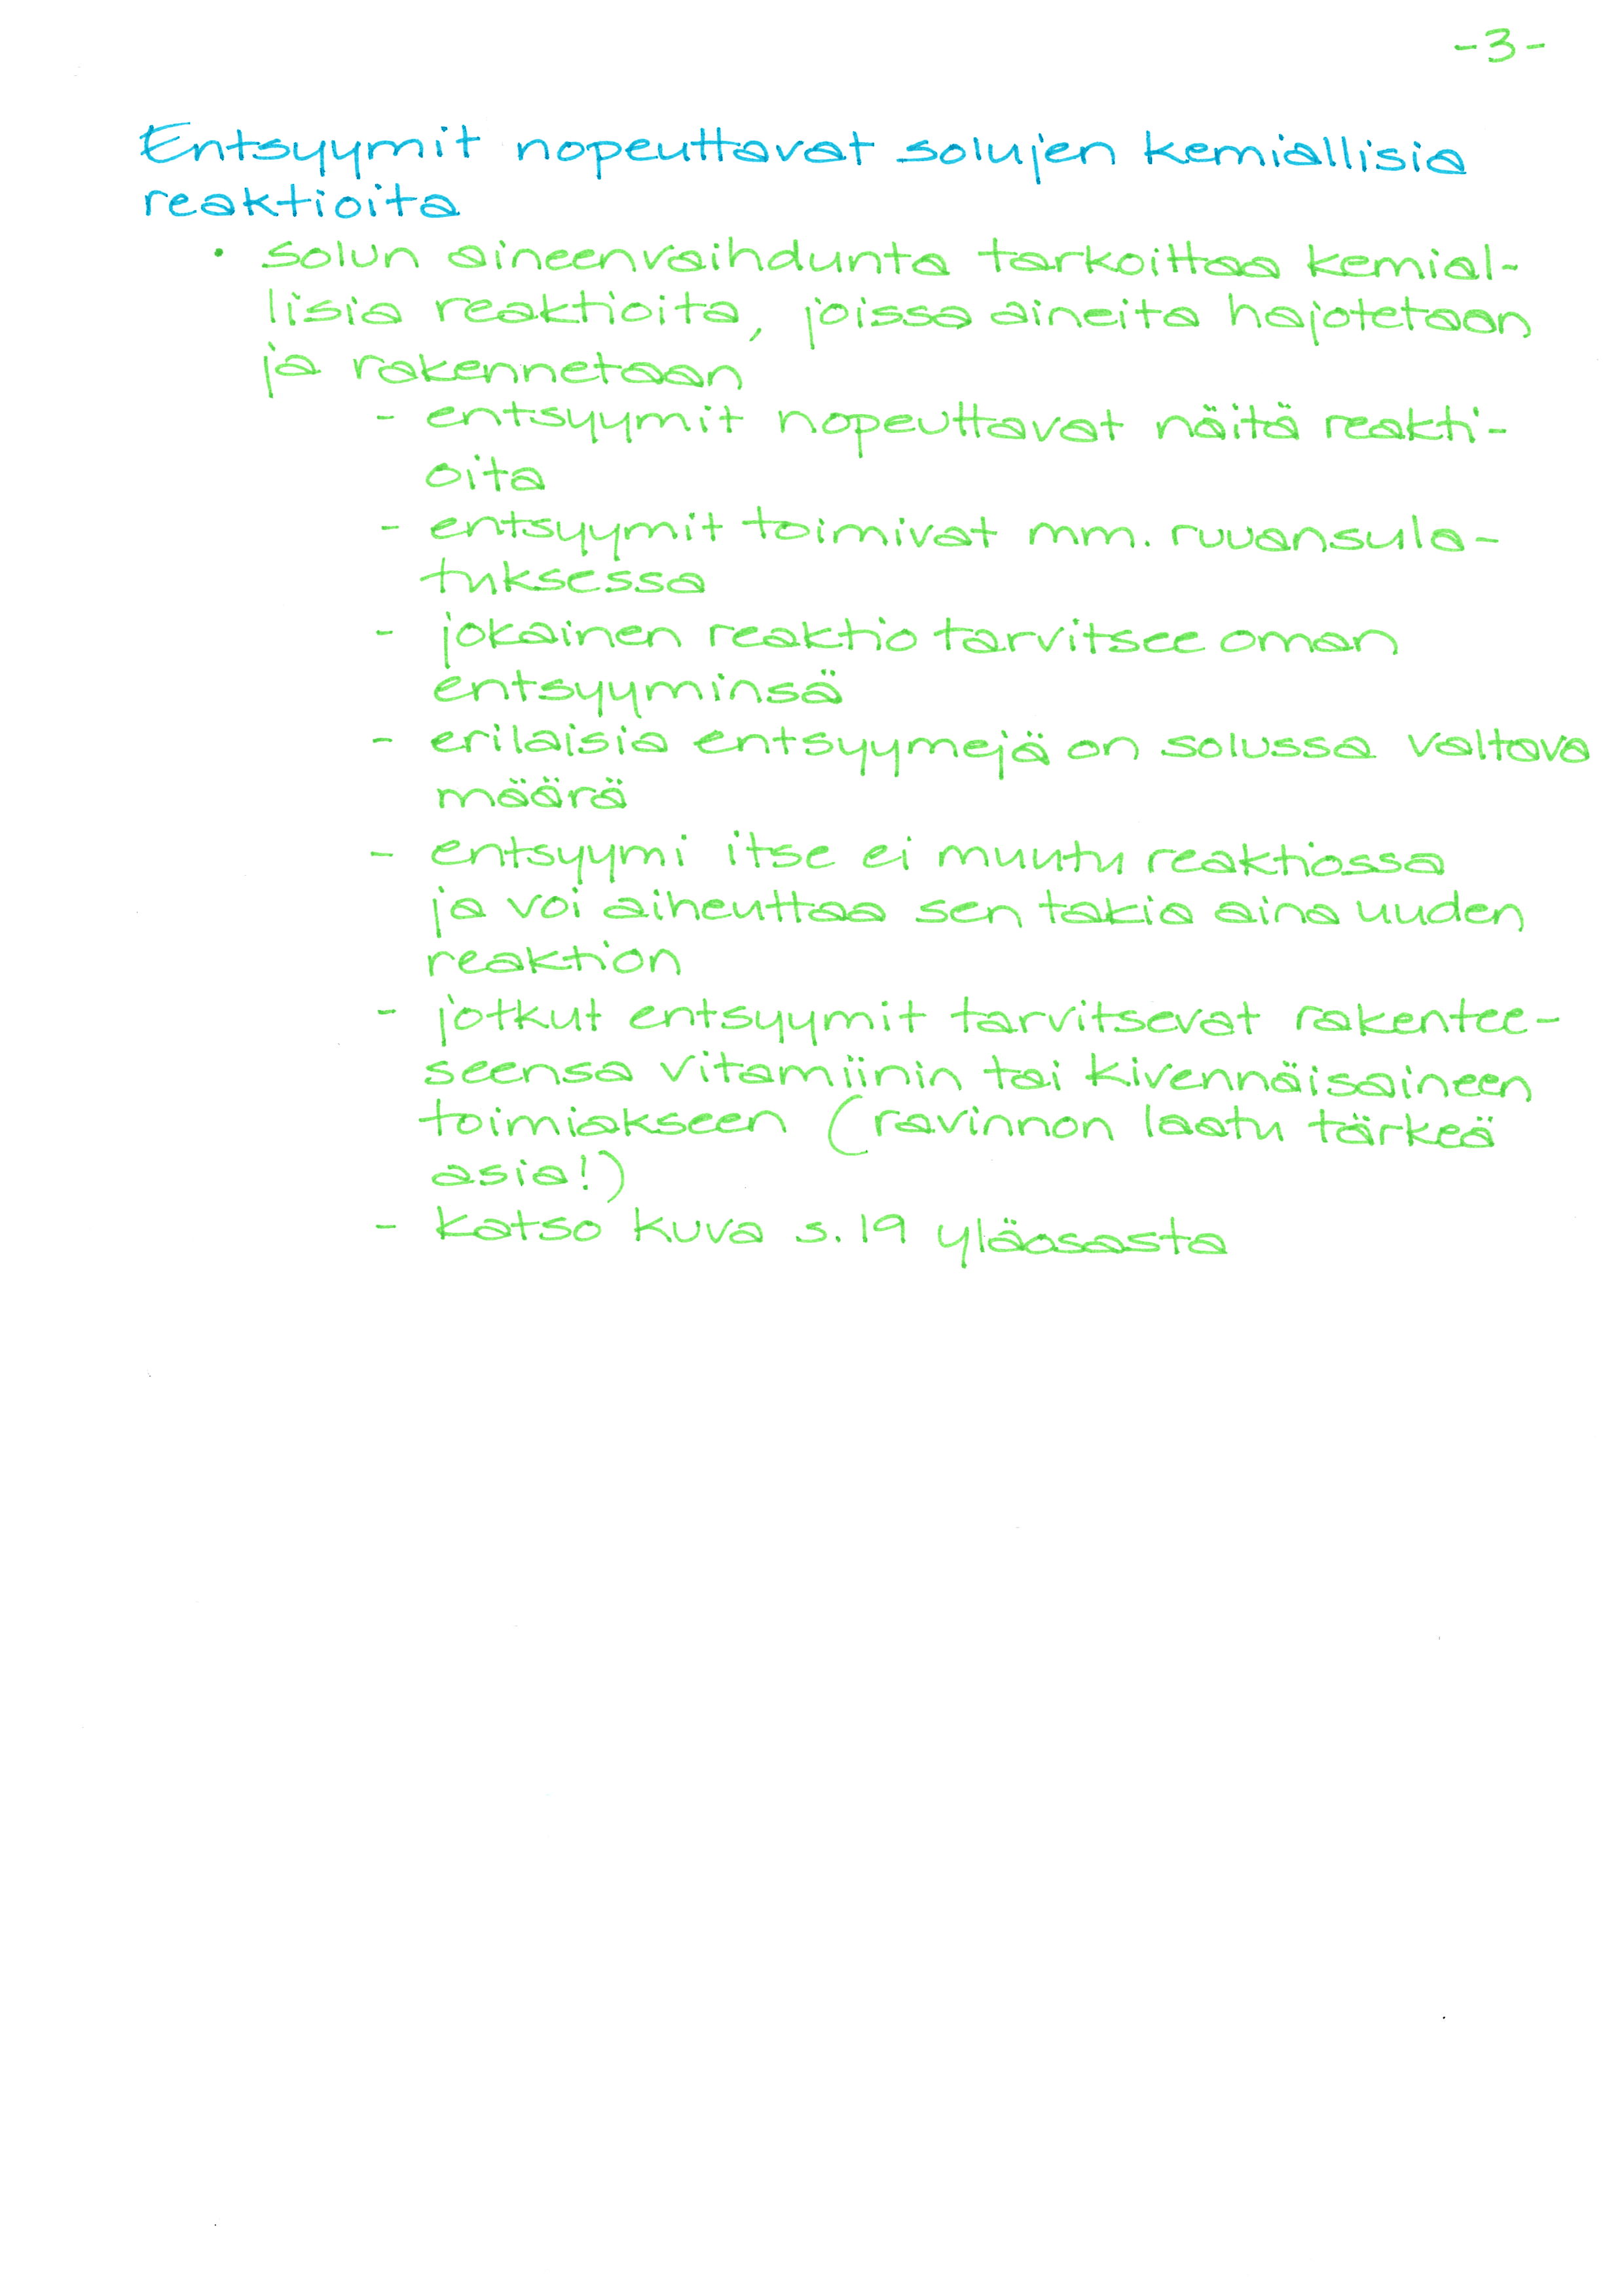 -3-
Entsyymit nopeuttavat solujen kemiallisia
reaktioita
• solun aineenvaihdunta tarkoittaa kemial-
lisia reaktioita, joissa aineita hajotetaan
ja rakennetaan
- entsyymit nopeuttavat näitä reakti-
oita
- entsyymit toimivat mm. ruuansula-
tuksessa
- jokainen reaktio tarvitsee oman
entsyyminsä
- erilaisia entsyymejä on solussa valtava
määrä
- entsyymi itse ei muutu reaktiossa
ja voi aiheuttaa sen takia aina uuden
reaktion
- jotkut entsyymit tarvitsevat rakentee-
seensa vitamiinin tai kivennäisaineen
toimiakseen (ravinnon laatu tärkeä
asia!)
- katso kuva s. 19 yläosasta